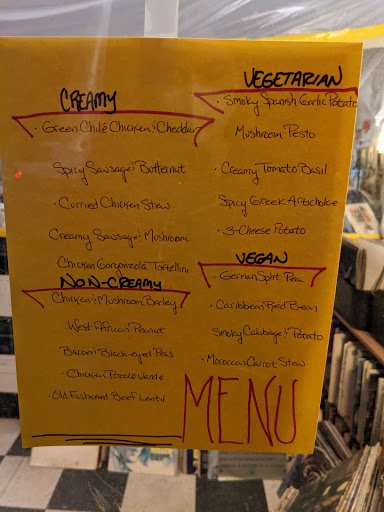 CREAMY
· Green Chile Chicken & Cheddar
Spicy Sausage & Butternut
· Curried Chicken Stew
Creamy Sausage & Mushroom
Chicken Gorgonzola Tortellini
NON-CREAMY
Chicken & Mushroom Barley
West African Peanut
Bacon & Black-eyed Peas
· Chicken Posole Verde
· Old Fashioned Beef Lentil
VEGETARIAN
· Smoky Spanish Garlic Potato
Mushroom Pesto
· Creamy Tomato Basil
Spicy Greek Artichoke
· 3-Cheese Potato
VEGAN
· German Split Pea
· Caribbean Red Bean
Smoky Cabbage & Potato
· Moroccan Carrot Stew
MENU